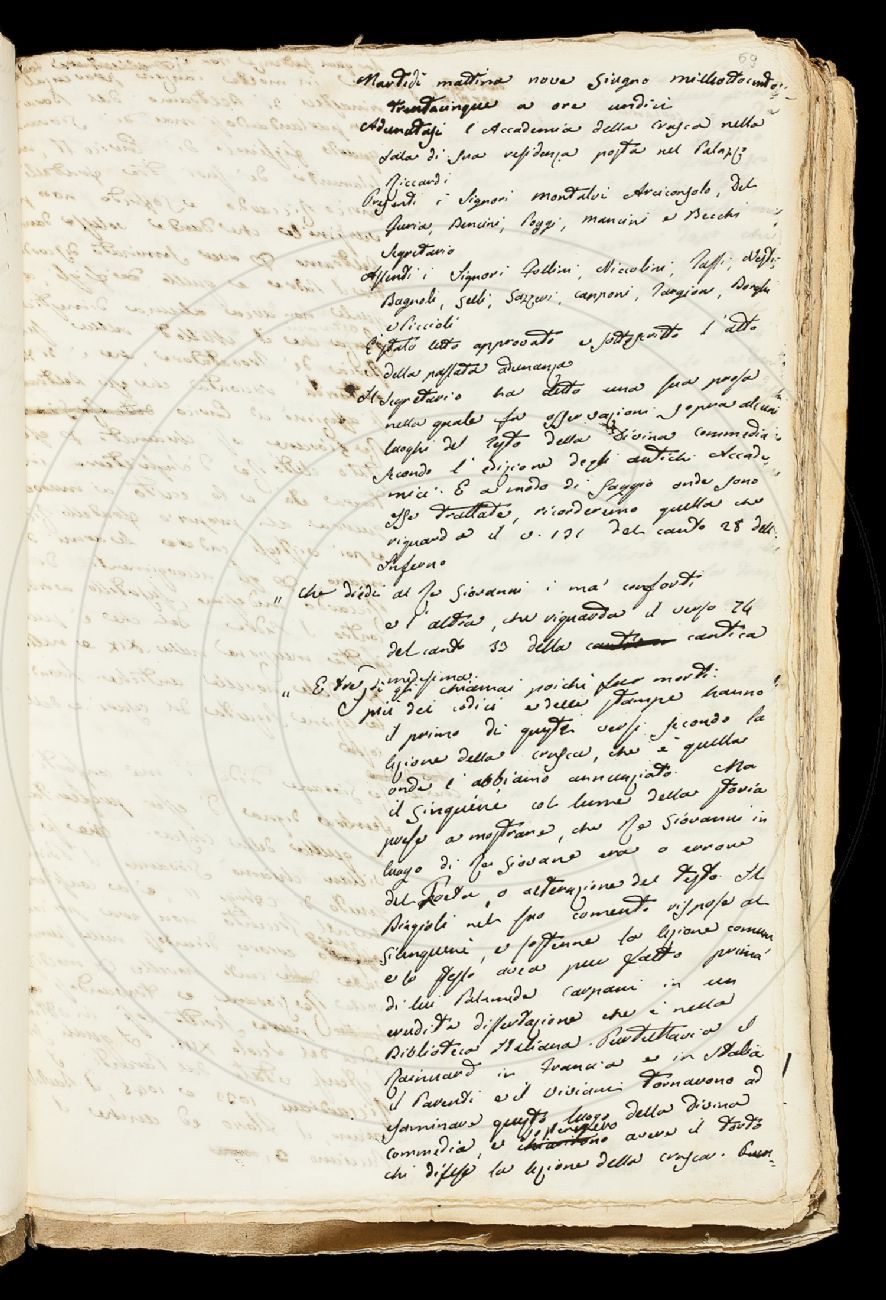 69
Martedì mattina nove Giugno milleottocento-
trentacinque a ore undici
Adunatasi l'Accademia della Crusca nella
sala di sua residenza posta nel Palazzo
Riccardi
Presenti i Signori Montalvi Arciconsolo, Del
Furia, Bencini, Poggi, Mancini e Becchi
Segretario
Assenti i Signori Follini, Niccolini, Tassi, Nesti,
Bagnoli, Gelli, Gazzeri, Capponi, Targioni, Borghi
e Piccioli
È stato letto approvato e sottoscritto l'atto
della passata adunanza
Il Segretario ha detto una sua prosa
nella quale fa osservazioni sopra alcuni
luoghi del testo della Divina Commedia
secondo l'edizione degli antichi Accade-
mici. E a modo di saggio onde sono
esse trattate, ricorderemo quella che
riguarda il v. 131 del canto 28 dell'
Inferno
" Che diedi al Re Giovanni i ma' conforti
e l'altra, che riguarda il verso 74
del canto 33 della cantica
medesima.
" E tre dì gli chiamai poichè fur morti.
più dei codici e delle stampe hanno
il primo di questi versi secondo la
lezione della Crusca, che è quella
onde l'abbiamo annunziato. Ma
il Ginguéné col lume della storia
prese a mostrare, che Re Giovanni in
luogo di Re Giovane era o errore
del Poeta, o alterazione del testo. Il
Biagioli nel suo comento rispose al
Ginguené, e sostenne la lezione comune
e lo stesso avea pur fatto prima
di lui Palamede Carpani in un
erudita dissertazione che è nella
Biblioteca Italiana. Purtuttavia il
Rainuard in Francia e in Italia
il Parenti e il Viviani tornavono ad
esaminare questo luogo della Divina
Commedia, e sostenevano avere il torto
chi difese la lezione della Crusca.